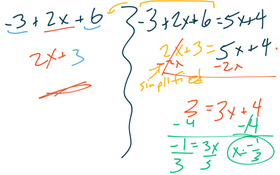 -3 + 2x + 6
2x + 3
-3 + 2x + 6 = 5x + 4
2x + 3 = 5x + 4
-2x -2x
simplified
3 = 3x + 4
-4 -4
-1/3 = 3x/3
x = -1/3